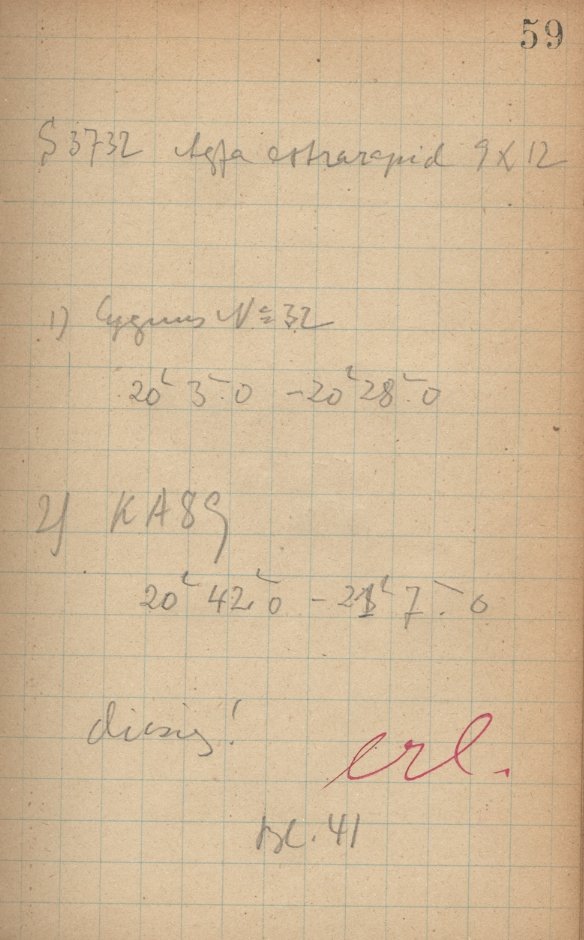 59
S 3732 Agfa extrarapid 9 X 12
1) Cygnus N = 32
20ʰ 3ᵐ.0 - 20ʰ 28ᵐ.0
2) KA 89
20ʰ 42ᵐ.0 - 21ʰ 7ᵐ.0
diesig!
erl.
Bl. 41